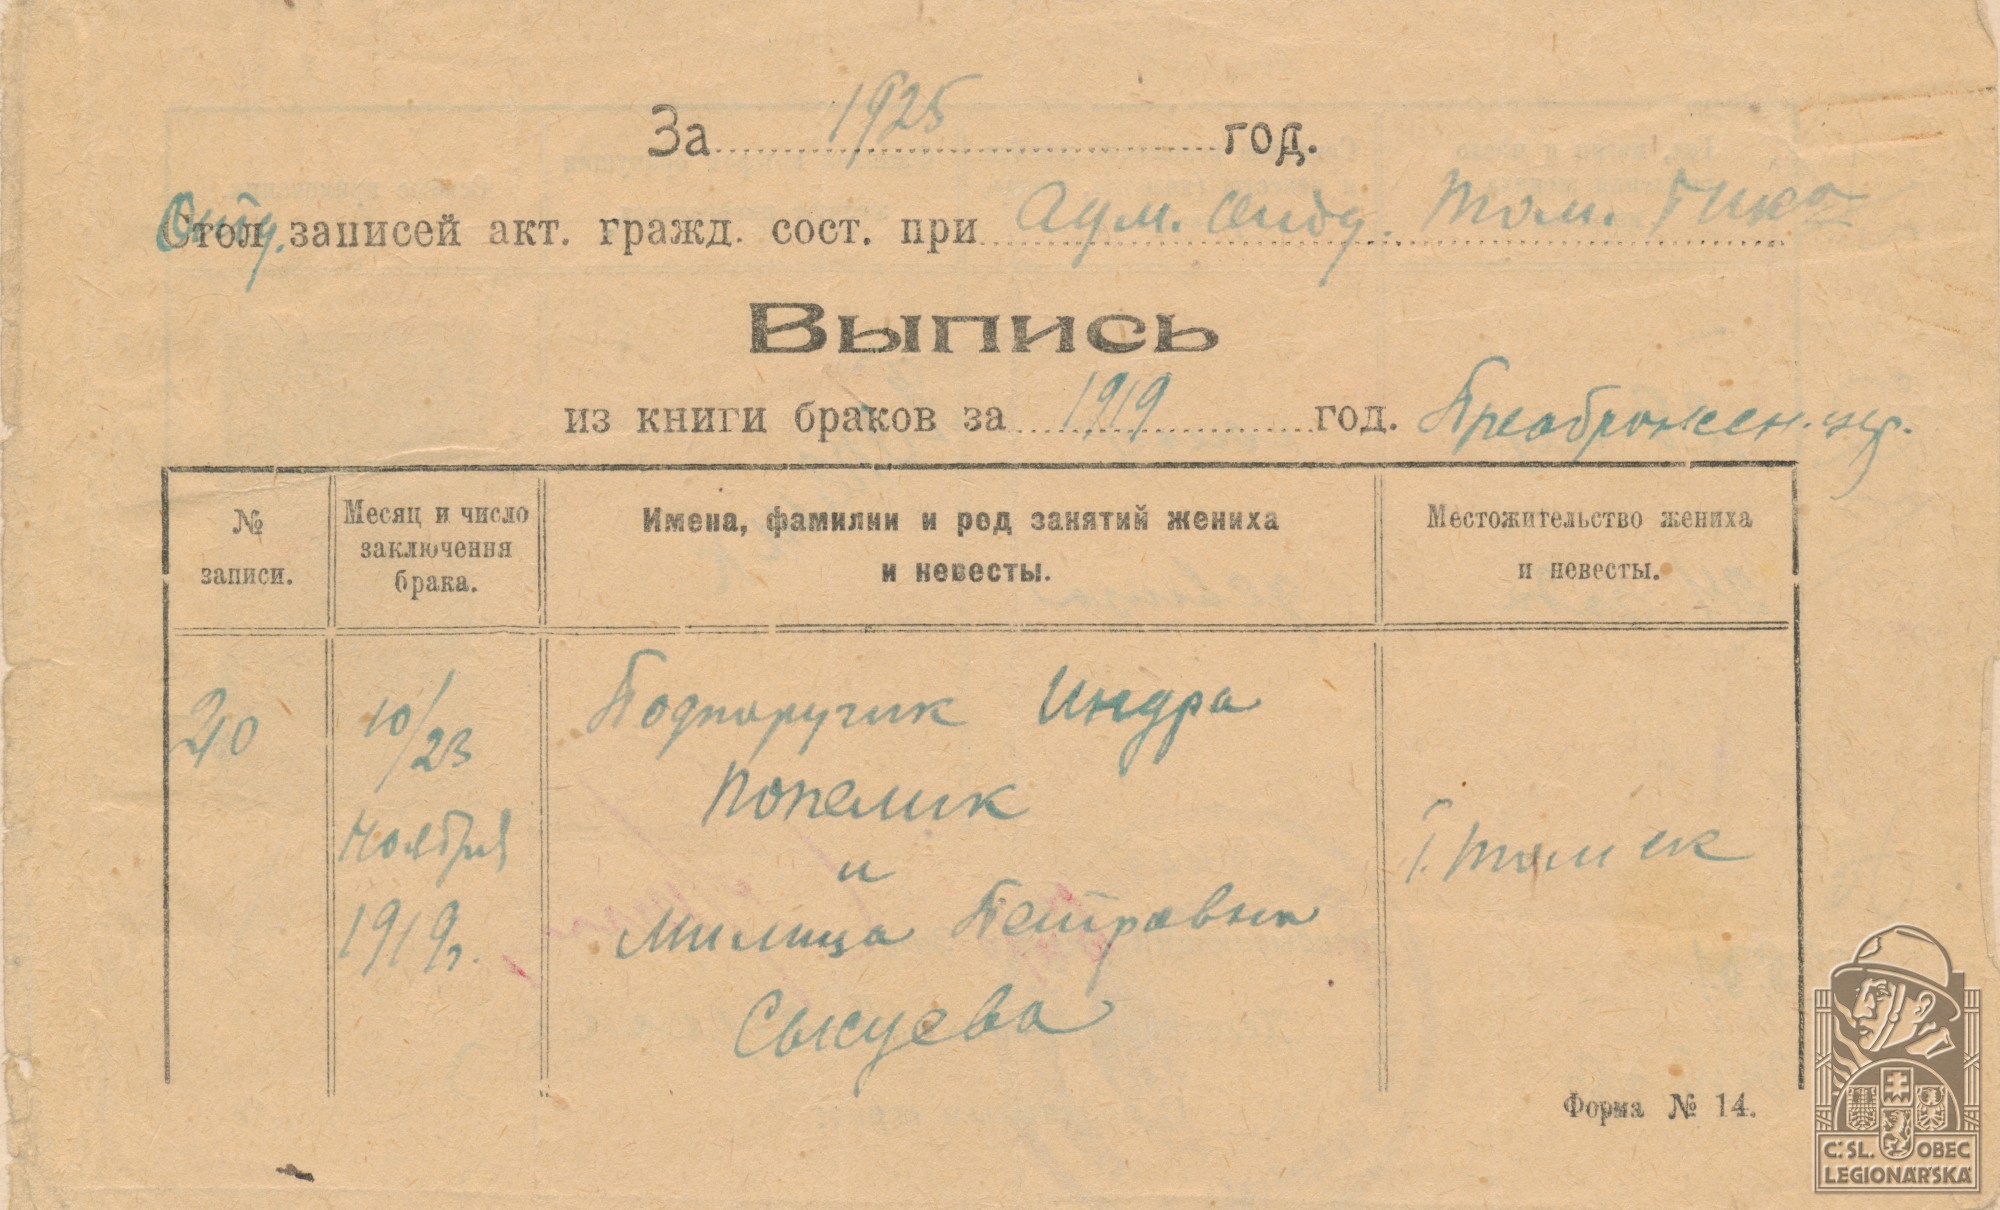 За 1925 год.
Отд. Стол. записей акт. гражд. сост. при Адм. Отд. Том. Гика
Выпись
из книги браков за 1919 год. Преображен. цер.
№ записи.
Месяц и число заключення брака.
Имена, фамилии и род занятий жениха и невесты.
Местожительство жениха и невесты.
20
10/23
Ноября
1919 г.
Подпоручик Индра
Попелик
и
Милица Петровна
Сысуева
г. Томск
Форма № 14.
Č.SL. OBEC
LEGIONÁŘSKÁ